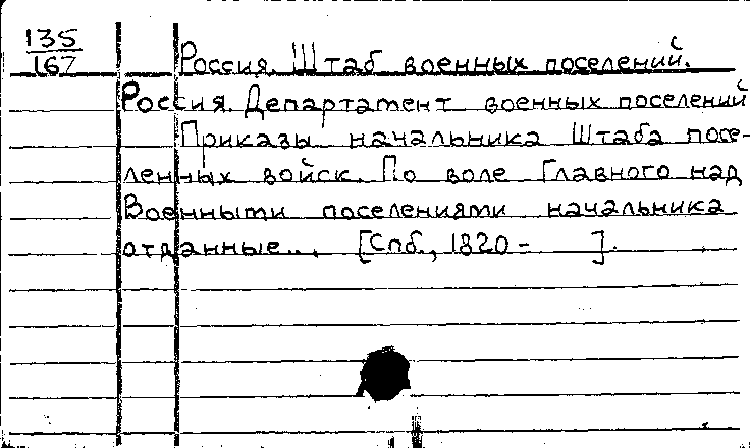 135
167
Россия. Штаб военных поселений.
Россия. Департамент военных поселений
Приказы начальника Штаба посе-
ленных войск. По воле Главного над
Военными поселениями начальника
отданные... [Спб., 1820 - ].